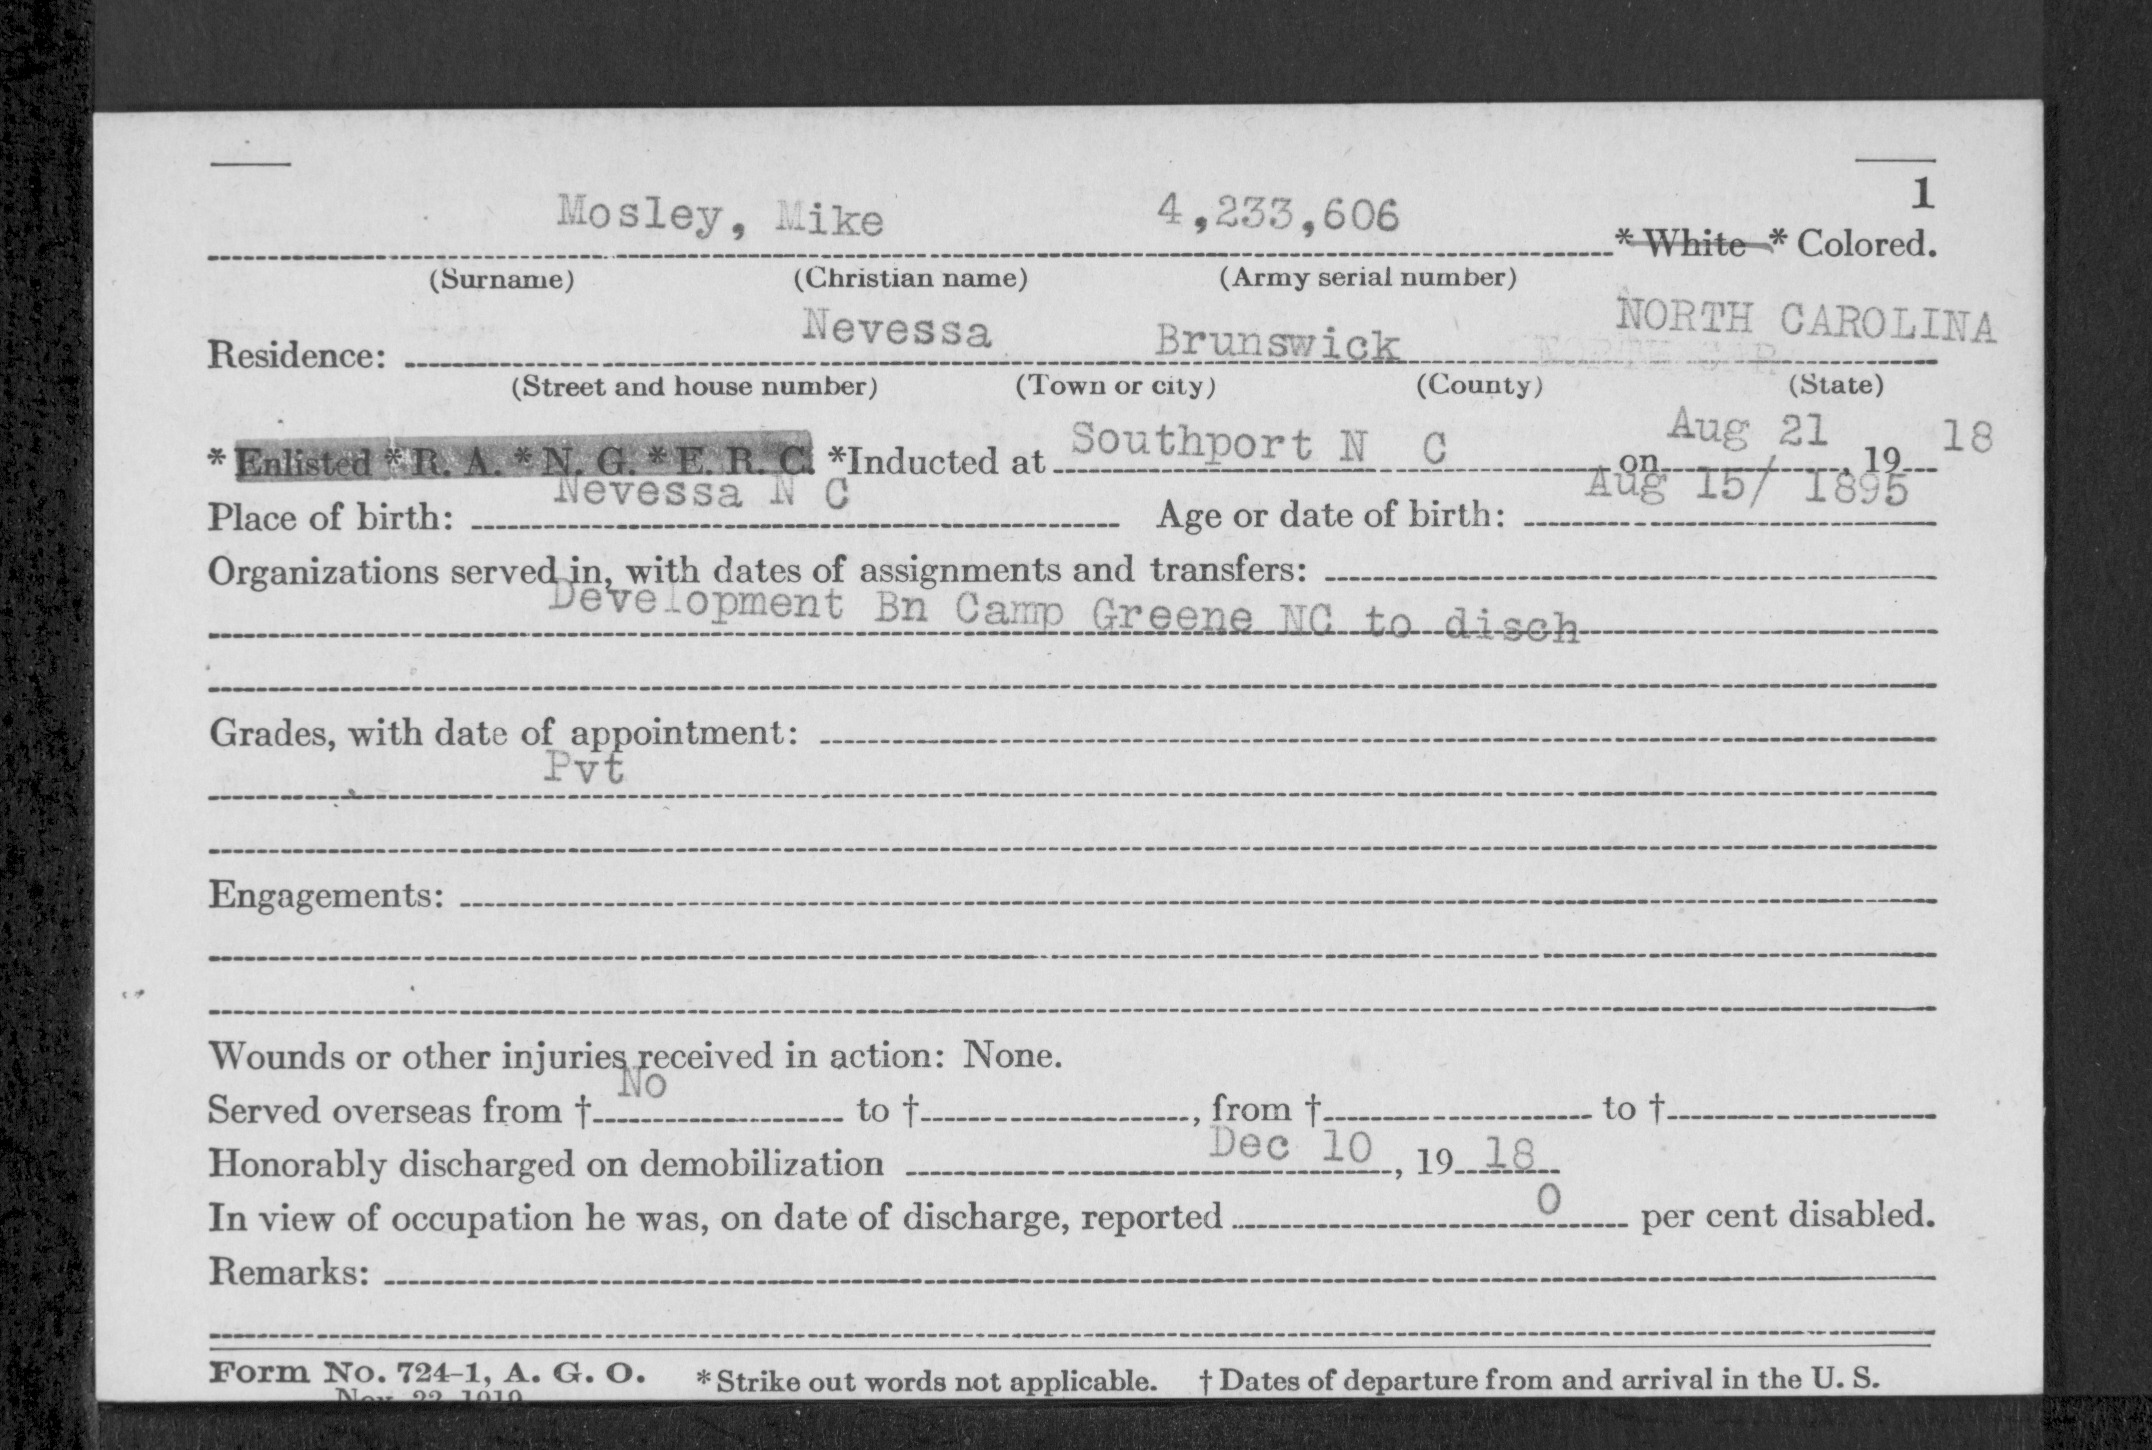 1
Mosley, Mike 4,233,606 * White * Colored.
(Surname) (Christian name) (Army serial number)
Residence: Nevessa Brunswick NORTH CAROLINA
(Street and house number) (Town or city) (County) (State)
* Enlisted * R. A. * N. G. * E. R. C. *Inducted at Southport N C on Aug 21, 19 18
Place of birth: Nevessa N C Age or date of birth: Aug 15/ 1895
Organizations served in, with dates of assignments and transfers:
Development Bn Camp Greene NC to disch
Grades, with date of appointment:
Pvt
Engagements:
Wounds or other injuries received in action: None.
Served overseas from † No to †, from † to †
Honorably discharged on demobilization Dec 10, 19 18
In view of occupation he was, on date of discharge, reported 0 per cent disabled.
Remarks:
Form No. 724-1, A. G. O. * Strike out words not applicable. † Dates of departure from and arrival in the U. S.
Nov. 22, 1919